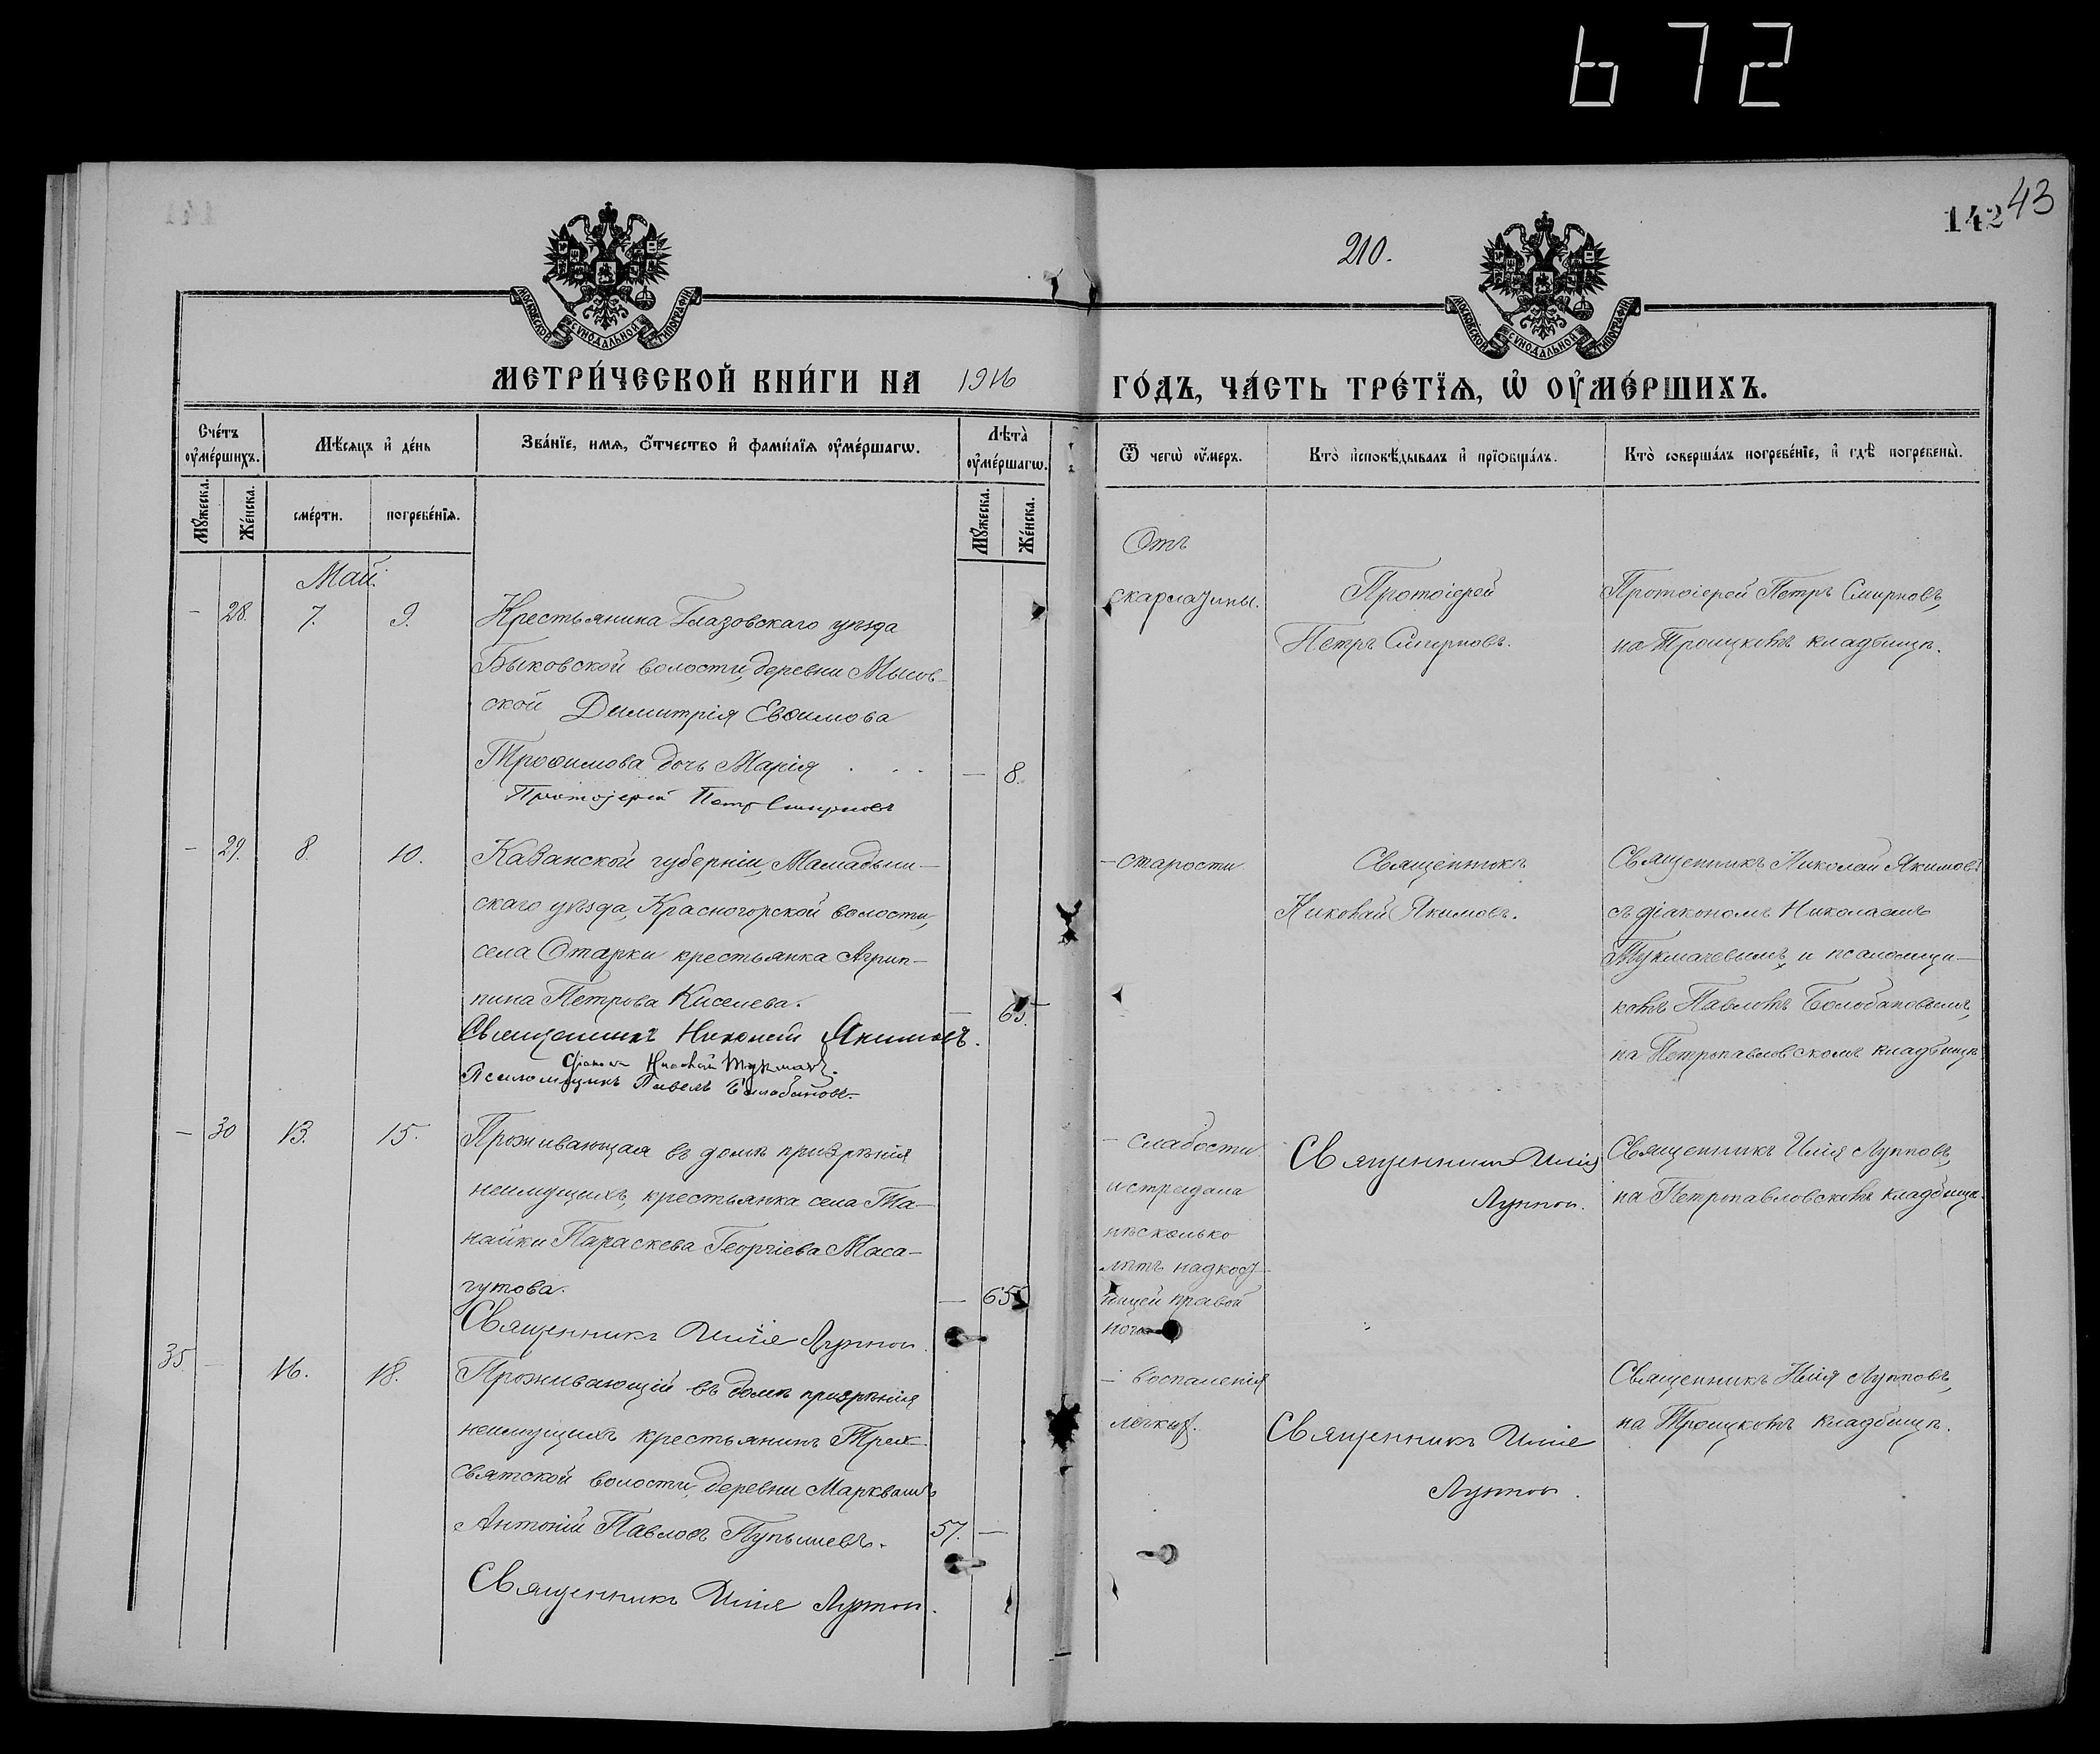 672
142 43
210.
МОСКОВСКОЙ СѴНОДАЛЬНОЙ ТИПОГРАФІИ
МОСКОВСКОЙ СѴНОДАЛЬНОЙ ТИПОГРАФІИ
МЕТРИ́ЧЕСКОЙ КНИ́ГИ НА 1916
ГО́ДЪ, ЧА́СТЬ ТРЕ́ТЇѦ, Ѡ҆ ОУ҆МЕ́РШИХЪ.
Сче́тъ оу҆ме́ршихъ.
Мѣ́сѧцъ и҆ де́нь
Зва́нїе, имѧ, ѻ҆́тчество и҆ фами́лїѧ оу҆ме́ршагѡ.
Лѣта̀ оу҆ме́ршагѡ.
Ѿ чегѡ̀ оу҆́меръ.
Кто̀ и҆сповѣ́дывалъ и҆ прїѻбща́лъ.
Кто̀ соверша́лъ погребе́нїе, и҆ гдѣ̀ погребены̀.
Мꙋ́жеска.
Же́нска.
сме́рти.
погребе́нїѧ.
Мꙋ́жеска.
Же́нска.
Май.
— 28. 7. 9.
Крестьянина Глазовскаго уѣзда
Быковской волости, деревни Мысов-
ской Димитрія Евѳимова
Трофимова дочь Марія . . . — 8.
Протоіерей Петр Смирновъ
Отъ
скарлатины.
Протоіерей
Петръ Смирновъ.
Протоіерей Петръ Смирновъ,
на Троицкомъ кладбищѣ.
— 29. 8. 10.
Казанской губерніи, Мамадыш-
скаго уѣзда, Красногорской волости,
села Отарки крестьянка Агрип-
пина Петрова Киселева. — 65.
Священникъ Николай Якимовъ.
Діаконъ Николай
Псаломщикъ Павелъ Болобановъ
— старости
Священникъ
Николай Якимовъ.
Священникъ Николай Якимовъ
съ діакономъ Николаемъ
Тукмачевымъ и псаломщи-
комъ Павломъ Болобановымъ,
на Петропавловскомъ кладбищѣ
— 30 13. 15.
Проживающая въ домѣ призрѣнія
неимущихъ, крестьянка села Та-
найки Параскева Георгіева Маса-
гутова. — 65
Священникъ Илія Луппов.
— слабости
и страдала
нѣсколько
лѣтъ
правой
ноги
Священникъ Илія
Луппов.
Священникъ Илія Лупповъ,
на Петропавловскомъ кладбищѣ.
35. — 16. 18.
Проживающій въ домѣ призрѣнія
неимущихъ крестьянинъ Трех-
святской волости, деревни Маркваши
Антоній Павловъ Пупышевъ. 57. —
Священникъ Илія Луппов.
— воспаленія
легкихъ.
Священникъ Илія
Луппов.
Священникъ Илія Лупповъ,
на Троицкомъ кладбищѣ.